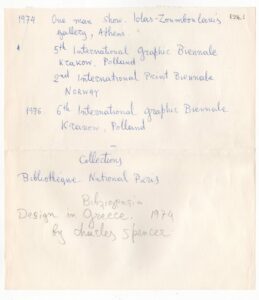 1974 One man show. Iolas-Zoumboulakis
gallery, Athens.
5th International Graphic Biennale
Krakow, Polland
2nd International Print Biennale
Norway
1976 6th International graphic Biennale
Krakow, Polland
Collections
Bibliothèque National Paris
Design in Greece. 1974
by Charles Spencer